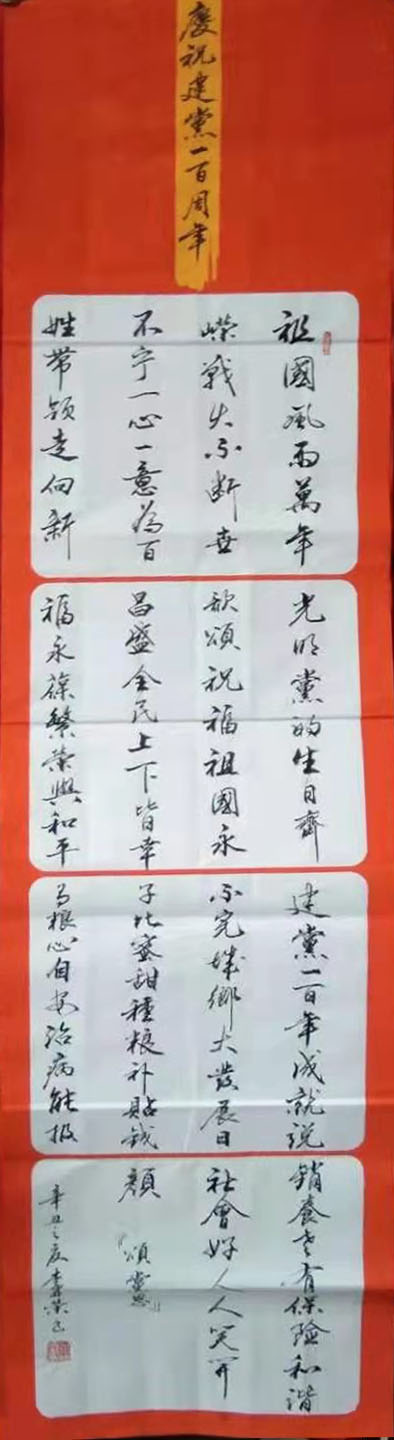 慶祝建黨一百周年
祖國風雨萬年
嶸戰火不斷世
不寧一心一意為百
姓帶領走向新
光明黨的生日齊
歌頌祝福祖國永
昌盛全民上下皆幸
福永葆繁榮與和平
建黨一百年成就说
不完城鄉大發展日
子比蜜甜種粮补貼錢
為根心自安治病能报
銷養老有保險和谐
社會好人人笑开
顏 『頌黨恩』
辛丑之夏李